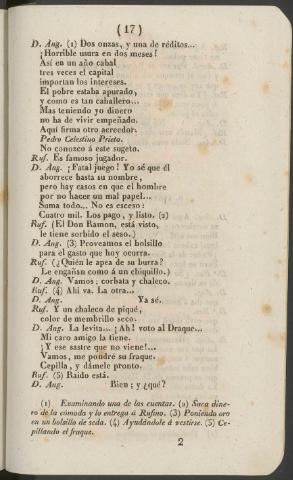 (17)
D. Aug. (1) Dos onzas, y una de réditos...
¡Horrible usura en dos meses!
Así en un año cabal
tres veces el capital
importan los intereses.
El pobre estaba apurado,
y como es tan caballero...
Mas teniendo yo dinero
no ha de vivir empeñado.
Aquí firma otro acreedor.
Pedro Celestino Prieto.
No conozco á este sugeto.
Ruf. Es famoso jugador.
D. Aug. ¡Fatal juego! Yo sé que él
aborrece hasta su nombre,
pero hay casos en que el hombre
por no hacer un mal papel...
Suma todo... No es esceso:
Cuatro mil. Los pago, y listo. (2)
Ruf. (El Don Ramon, está visto,
le tiene sorbido el seso.)
D. Aug. (3) Proveamos el bolsillo
para el gasto que hoy ocurra.
Ruf. (¿Quién le apea de su burra?
Le engañan como á un chiquillo.)
D. Aug. Vamos: corbata y chaleco.
Ruf. (4) Ahí va. La otra...
D. Aug. Ya sé.
Ruf. Y un chaleco de piqué,
color de membrillo seco.
D. Aug. La levita... ¡Ah! voto al Draque...
Mi caro amigo la tiene.
¡Y ese sastre que no viene!...
Vamos, me pondré su fraque.
Cepilla, y dámele pronto.
Ruf. (5) Raido está.
D. Aug. Bien; y ¿qué?
(1) Examinando una de las cuentas. (2) Saca dine-
ro de la cómoda y lo entrega á Rufino. (3) Poniendo oro
en un bolsillo de seda. (4) Ayudándole á vestirse. (5) Ce-
pillando el fraque.
2